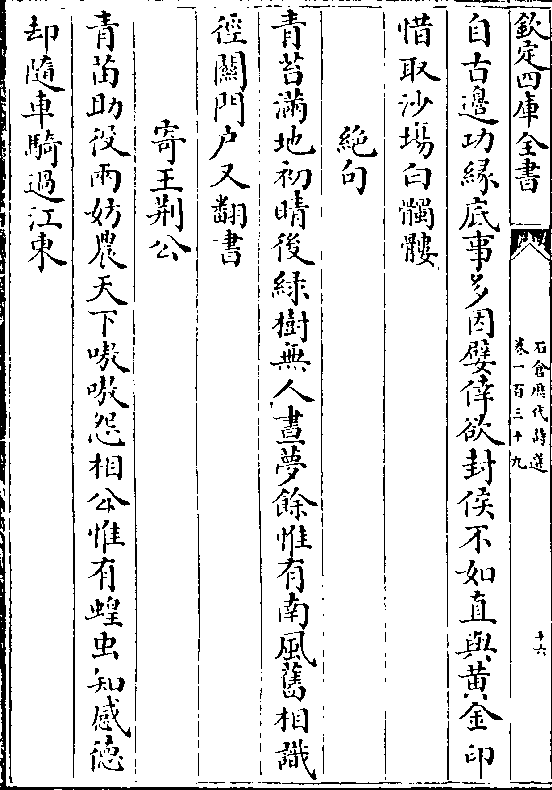 欽定四庫全書
石倉厯代詩選
卷一百三十九
十六
自古邊功緣底事多因嬖倖欲封侯不如直與黄金印
惜取沙場白髑髏
絶句
青苔滿地初晴後綠樹無人晝夢餘惟有南風舊相識
徑闗門户又翻書
寄王荆公
青苗助役兩妨農天下嗷嗷怨相公惟有蝗虫知感德
却隨車騎過江東